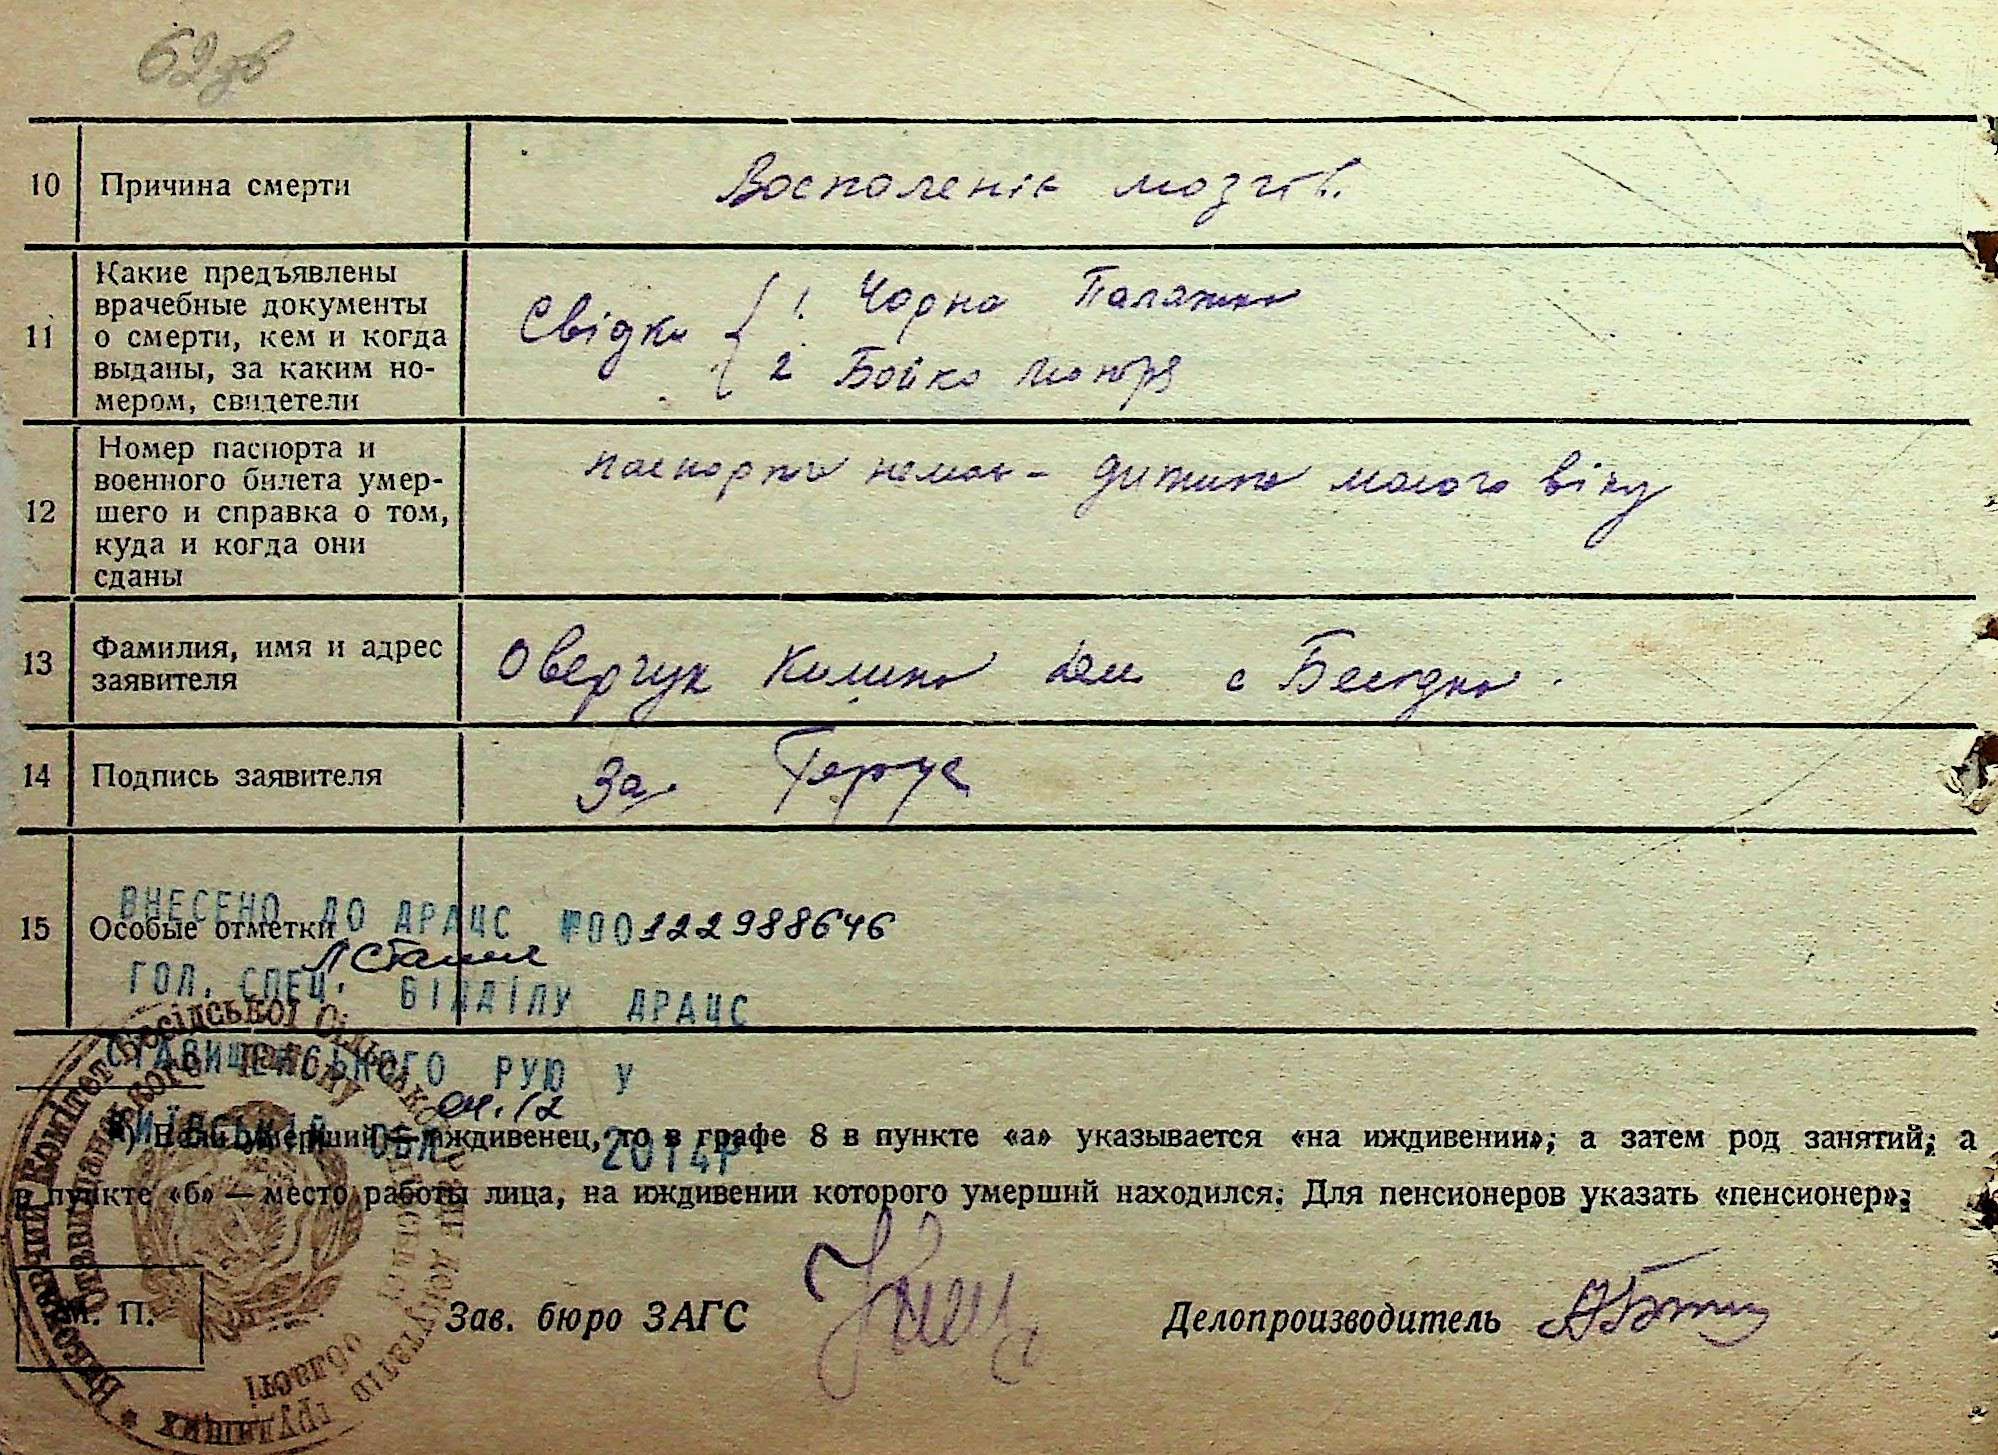 62зв
10 Причина смерти Воспаленіє мозгів.
11 Какие предъявлены
врачебные документы
о смерти, кем и когда
выданы, за каким но-
мером, свидетели
Свідки { 1. Чорна Палажка
2 Бойко
12 Номер паспорта и
военного билета умер-
шего и справка о том,
куда и когда они
сданы
паспорта немає - дитина малого віку
13 Фамилия, имя и адрес
заявителя
Оверчук Килина с Бесідка.
14 Подпись заявителя За Герус
15 Особые отметки
ВНЕСЕНО ДО ДРАЦС №00122988646
ГОЛ. СПЕЦ. ВІДДІЛУ ДРАЦС
СТАВИЩЕНСЬКОГО РУЮ У
04.12
КИЇВСЬКІЙ ОБЛ 2014Р
*) Если умерший — иждивенец, то в графе 8 в пункте «а» указывается «на иждивении»; а затем род занятий; а
в пункте «б» — место работы лица, на иждивении которого умерший находился; Для пенсионеров указать «пенсионер»;
М. П.
Зав. бюро ЗАГС
Делопроизводитель
Виконавчий Комітет Бесідської Сільської Ради депутатів трудящих
Ставищанського району Київської області